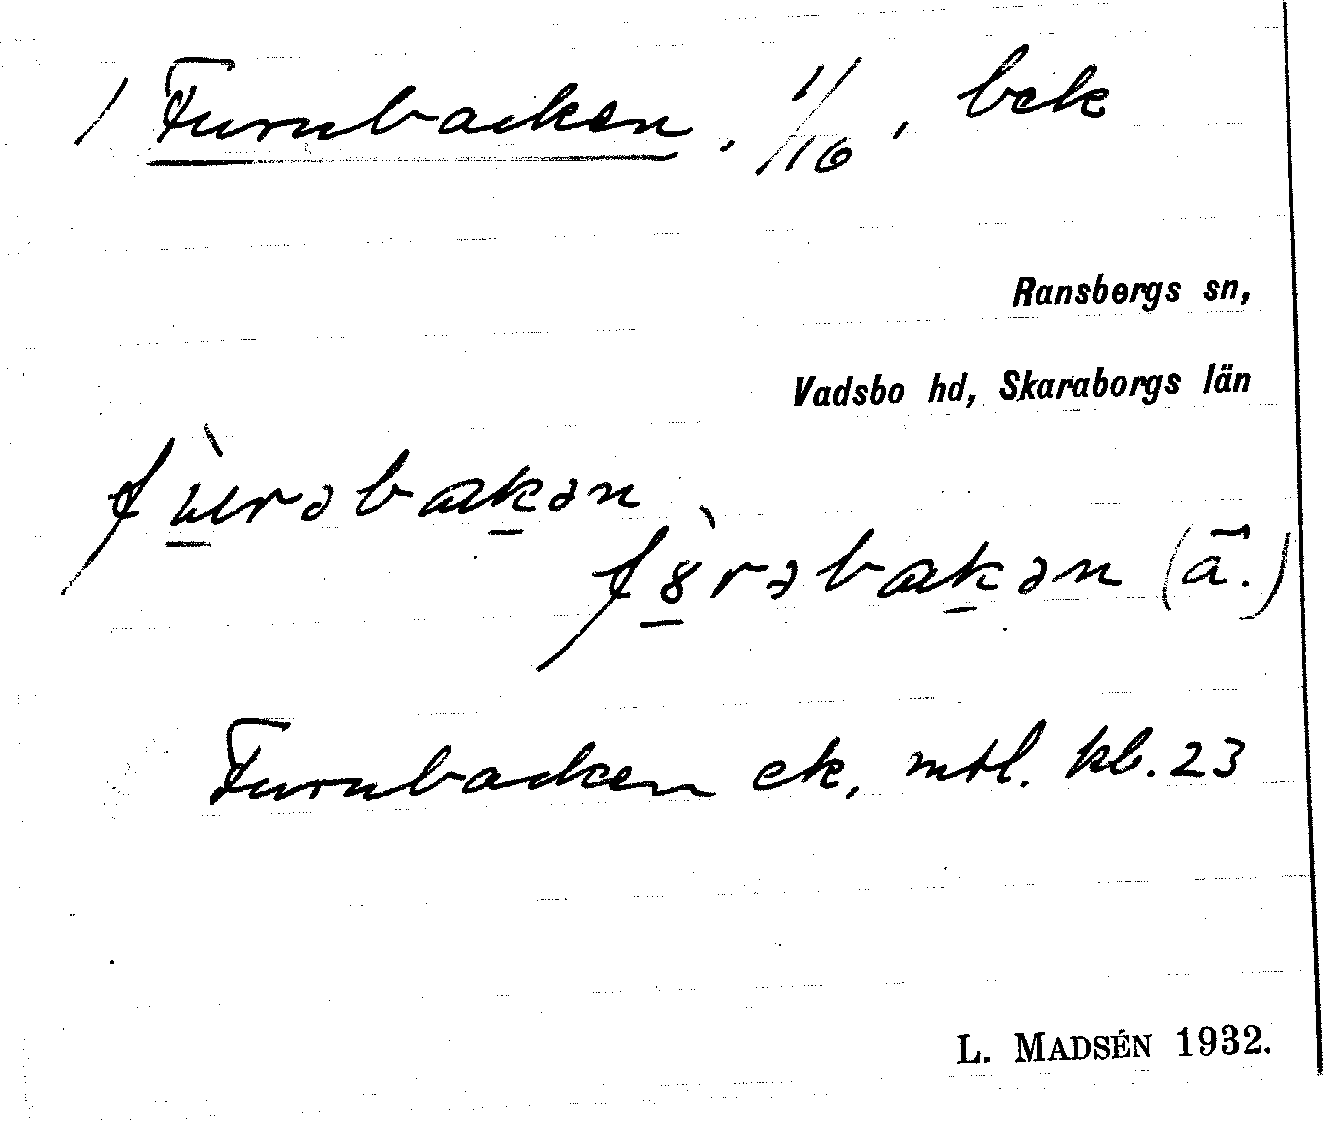 1 Furubacken. 1/16, bek
Ransbergs sn,
Vadsbo hd, Skaraborgs län
fù̱rəbak̠ən
fȣ̱̀rəbak̠ən (ä.)
Furubacken ek. mtl. kb. 23
L. MADSÉN 1932.